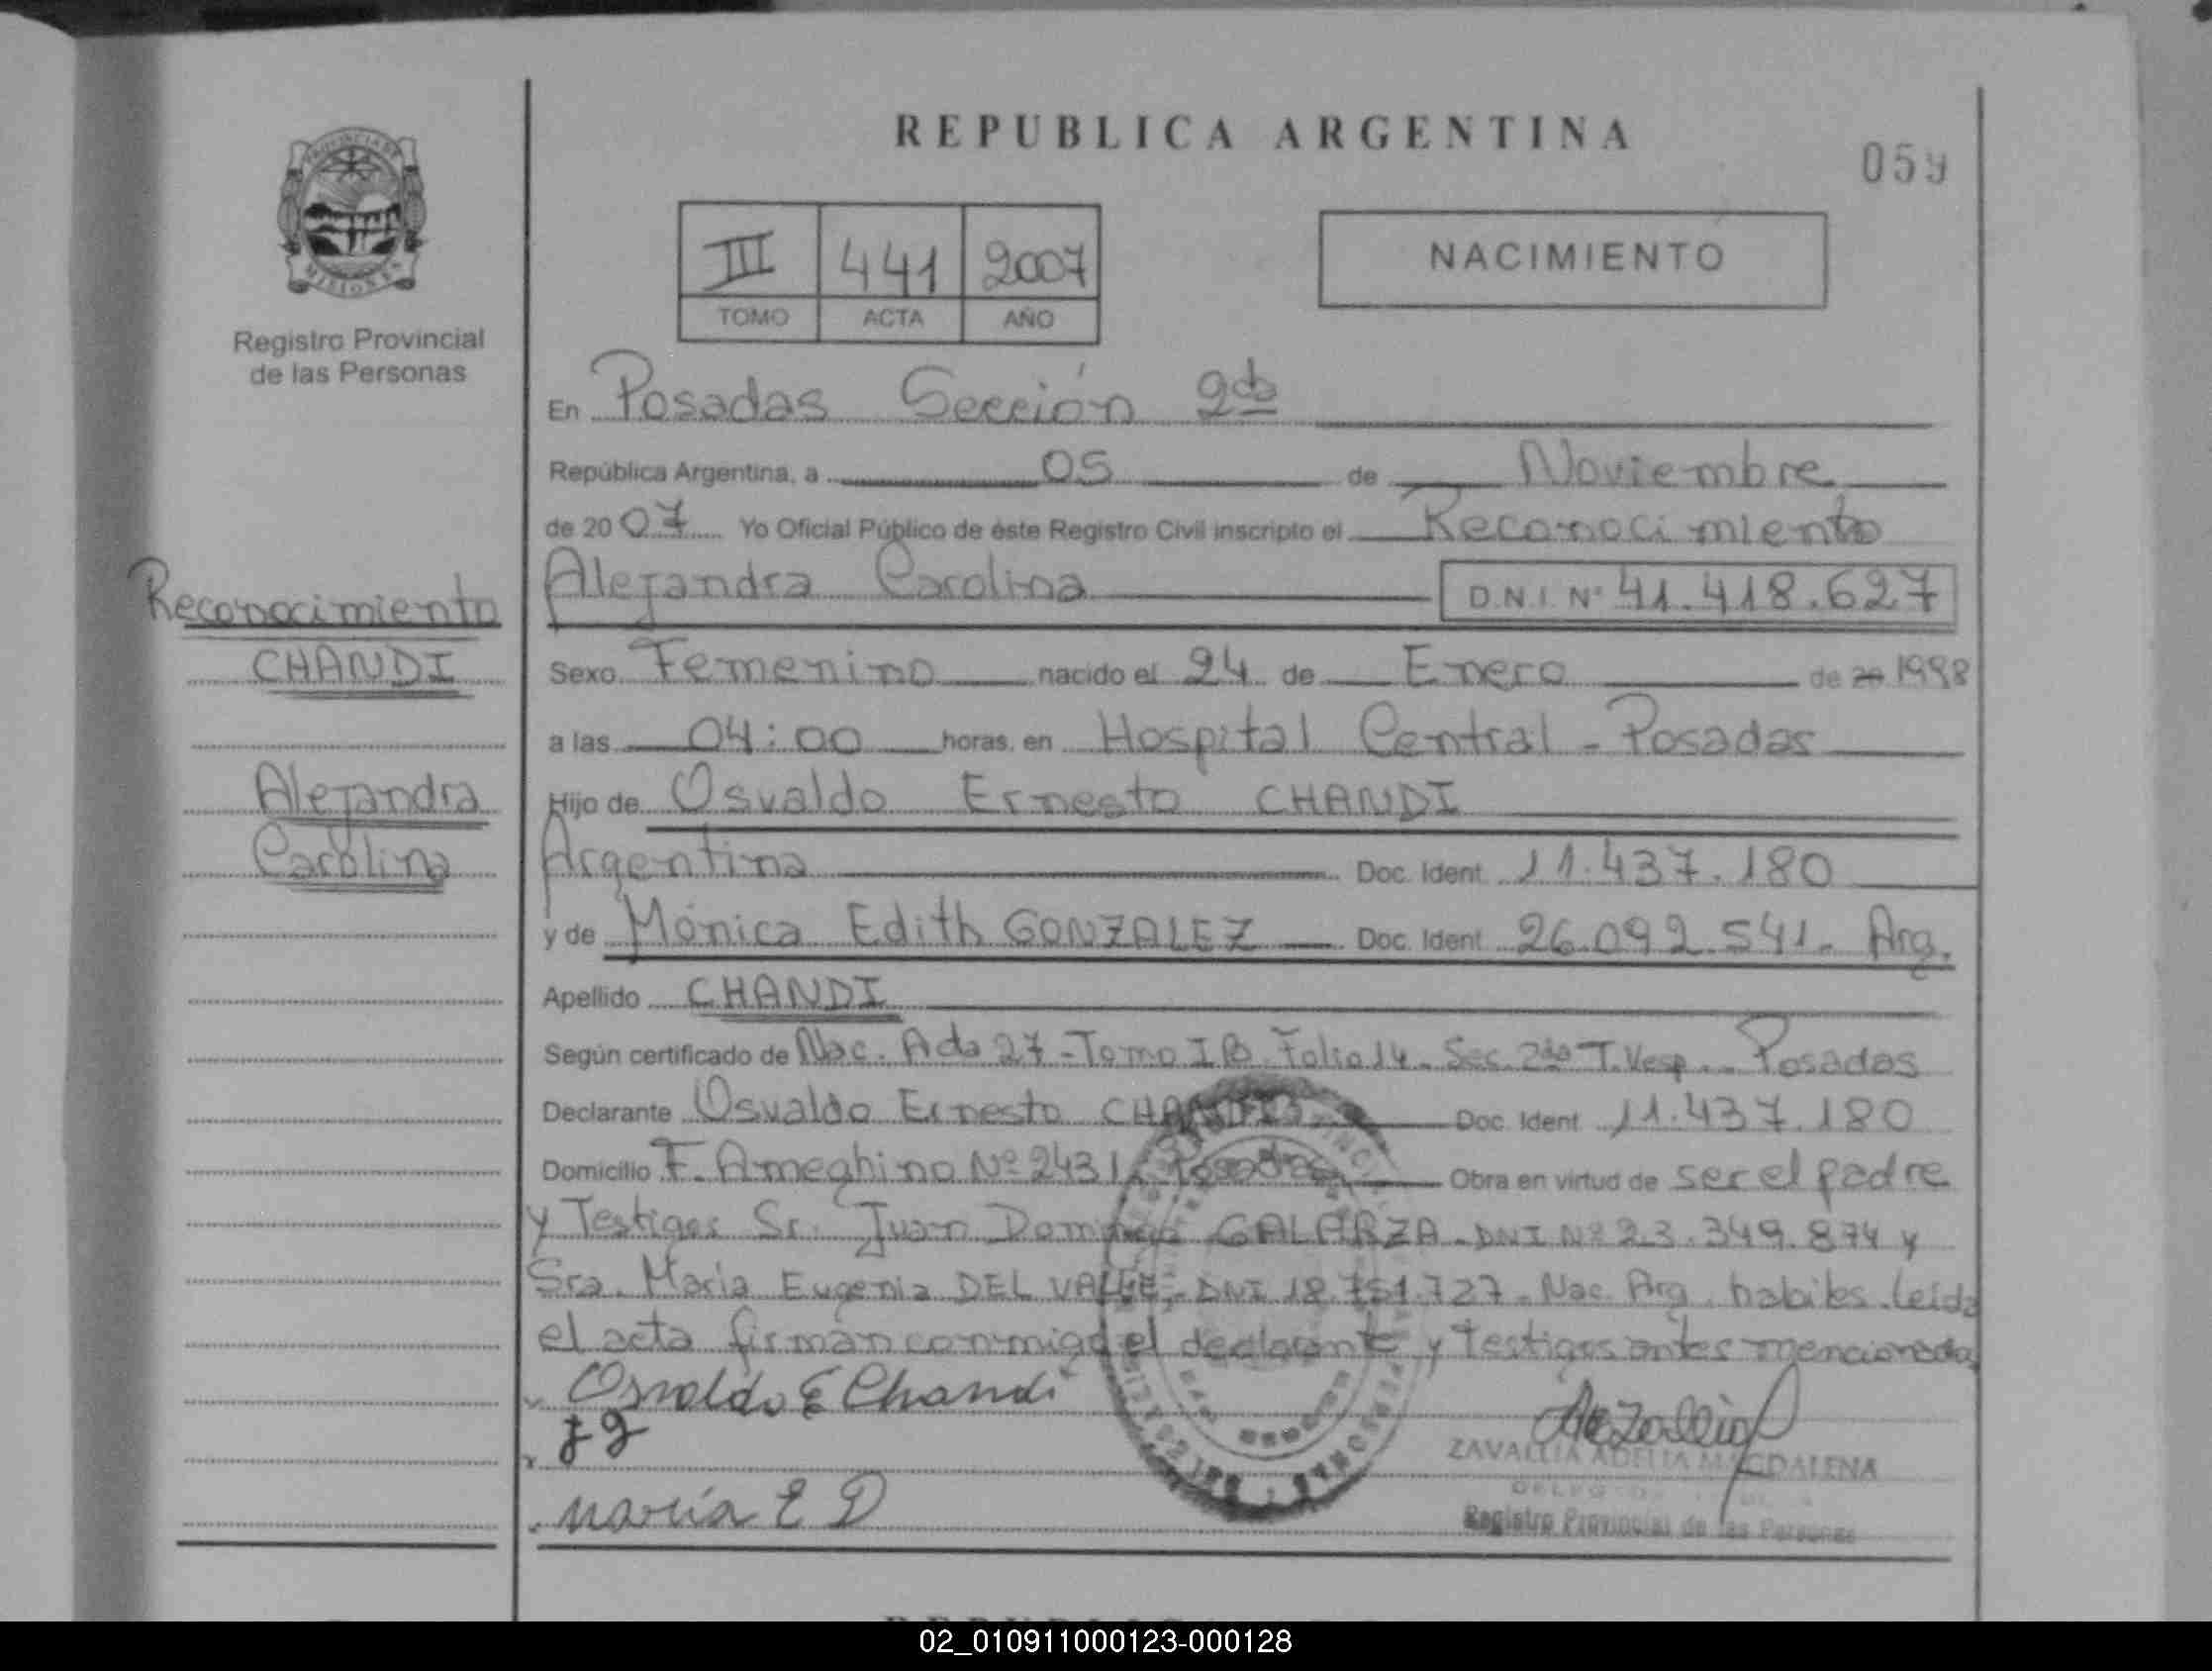 REPUBLICA ARGENTINA
059
PROVINCIA DE
MISIONES
Registro Provincial
de las Personas
III 441 2007
TOMO ACTA AÑO
NACIMIENTO
En Posadas Sección 2da
República Argentina, a 05 de Noviembre
de 2007 Yo Oficial Público de éste Registro Civil inscripto el Reconocimiento
Alejandra Carolina D.N.I. Nº 41.418.627
Reconocimiento
CHANDI
Alejandra
Carolina
Sexo Femenino nacido el 24 de Enero de 20 1998
a las 04:00 horas, en Hospital Central - Posadas
Hijo de Osvaldo Ernesto CHANDI
Argentina Doc. Ident. 11.437.180
y de Mónica Edith GONZALEZ Doc. Ident. 26.092.541- Arg.
Apellido CHANDI
Según certificado de Nac. Acta 27 - Tomo IB. Folio 14 - Sec. 2da T. Vesp. - Posadas
Declarante Osvaldo Ernesto CHANDI Doc. Ident. 11.437.180
Domicilio F. Ameghino Nº 2431 Posadas Obra en virtud de ser el padre
y Testigos Sr. Juan Domingo GALARZA - DNI Nº 23.349.874 y
Sra. María Eugenia DEL VALLE - DNI 18.751.727 - Nac. Arg. habiles. Leida
el acta firman conmigo el declarante y testigos antes mencionados
Osvaldo E Chandi
JG
María E D
ZAVALLIA ADELIA MAGDALENA
Registro Provincial de las Personas
02_010911000123-000128